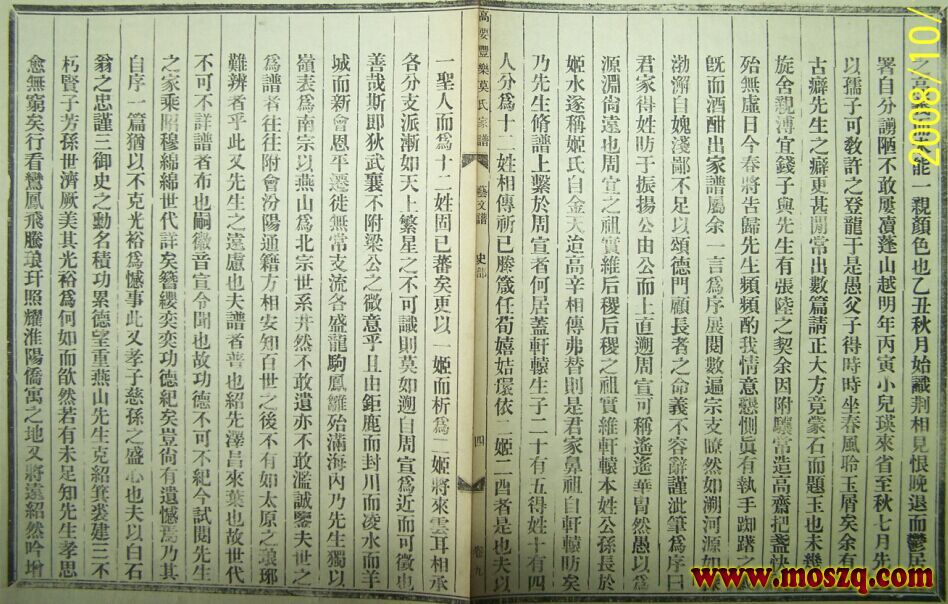 能一親顏色也乙丑秋月始識荆相見恨晚退而鬱居
署自分謭陋不敢屢凟蓬山越明年丙寅小兒瑛來省至秋七月先
以孺子可敎許之登龍于是愚父子得時時坐春風聆玉屑矣余有
古癖先生之癖更甚閒常出數篇請正大方竟蒙石而題玉也未幾
旋舍親溥宜錢子與先生有張陸之契余因附驥常造高齋把盞快
殆無虛日今春將告歸先生頻頻酌我情意懇惻眞有執手踟躇之
旣而酒酣出家譜屬余一言爲序展閱數遍宗支瞭然如溯河源如
渤澥自媿淺鄙不足以頌德門顧長者之命義不容辭謹泚筆爲序曰
君家得姓昉于振揚公由公而上直遡周宣可稱遙遙華胄然愚以爲
源淵尙遠也周宣之祖實維后稷后稷之祖實維軒轅本姓公孫長於
姬水遂稱姬氏自金天治高辛相傳弗替則是君家鼻祖自軒轅昉矣
乃先生脩譜上繫於周宣者何居蓋軒轅生子二十有五得姓十有四
人分爲十二姓相傳祈已滕箴任荀嬉姞儇依二姬二酉者是也夫以
高要豐樂莫氏家譜
藝文譜
史部
四
卷九
一聖人而爲十二姓固已蕃矣更以一姬而析爲二姬將來雲耳相承
各分支派漸如天上繁星之不可識則莫如遡自周宣爲近而可徵也
善哉斯卽狄武襄不附梁公之微意乎且由鉅鹿而封川而凌水而羊
城而新會恩平遷徙無常支流各盛龍駒鳳雛殆滿海內乃先生獨以
嶺表爲南宗以燕山爲北宗世系井然不敢遺亦不敢濫誠鑒夫世之
爲譜者往往附會汾陽通籍方相安知百世之後不有如太原之琅琊
難辨者乎此又先生之遠慮也夫譜者普也紹先澤昌來葉也故世代
不可不詳譜者布也嗣徽音宣令聞也故功德不可不紀今試閱先生
之家乘昭穆綿綿世代詳矣簪纓奕奕功德紀矣豈尙有遺憾焉乃其
自序一篇猶以不克光裕爲憾事此又孝子慈孫之盛心也夫以白石
翁之忠謹三御史之勳名積功累德室重燕山先生克紹箕裘建三不
朽賢子芳孫世濟厥美其光裕爲何如而欿然若有未足知先生孝思
愈無窮矣行看鸞鳳飛騰琅玕照耀淮陽僑寓之地又將遠紹然吟增
2008/10/
www.moszq.com